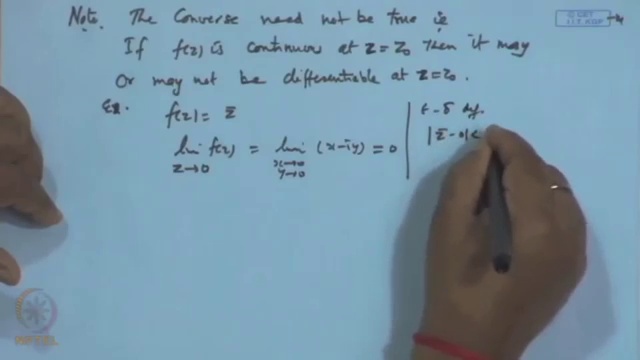 Note. The Converse need not be true ie
If f(z) is continuous at z = z₀ then it may
Or may not be differentiable at z = z₀.
Ex. f(z) = z̄
lim f(z) = lim (x-iy) = 0
z→0 x→0
y→0
ε-δ def.
|z̄-0|<
© CET
I.I.T. KGP
NPTEL